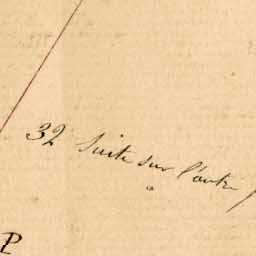 32 Suite sur l'autre
P